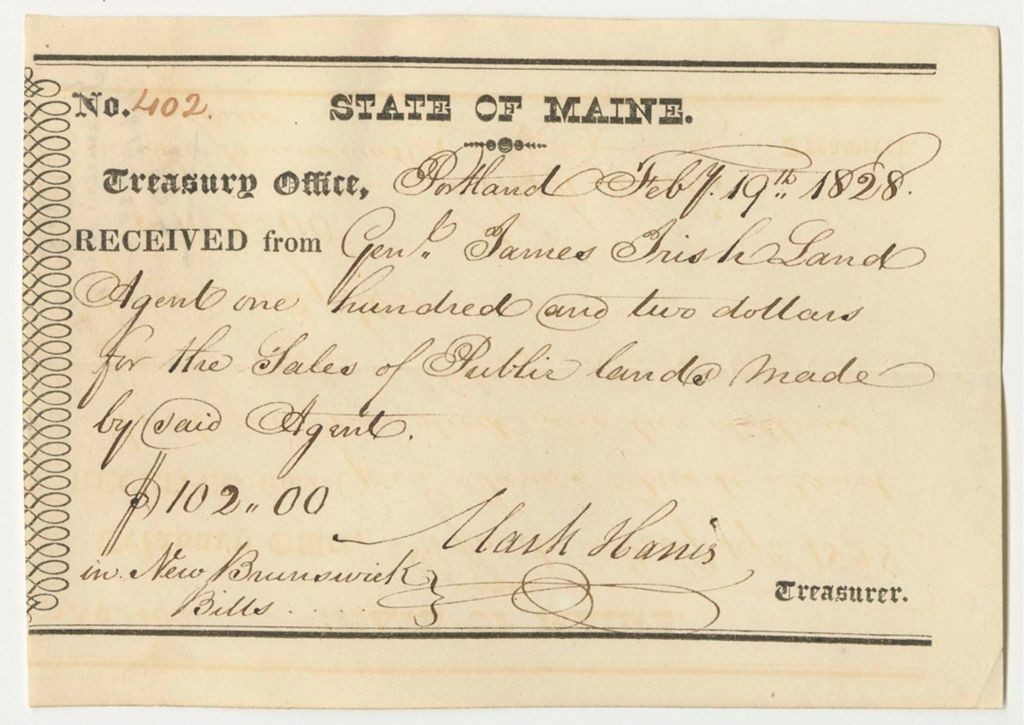 No. 402. STATE OF MAINE.
Treasury Office, Portland Feby. 19th. 1828.
RECEIVED from Genl. James Irish Land
Agent one hundred and two dollars
for the Sales of Public lands made
by said Agent.
$102.00
Mark Harris
in New Brunswick
Bills...
Treasurer.